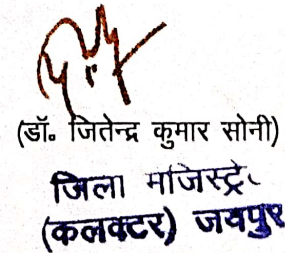 (डॉ॰ जितेन्द्र कुमार सोनी)
जिला मजिस्ट्रे
(कलक्टर) जयपुर